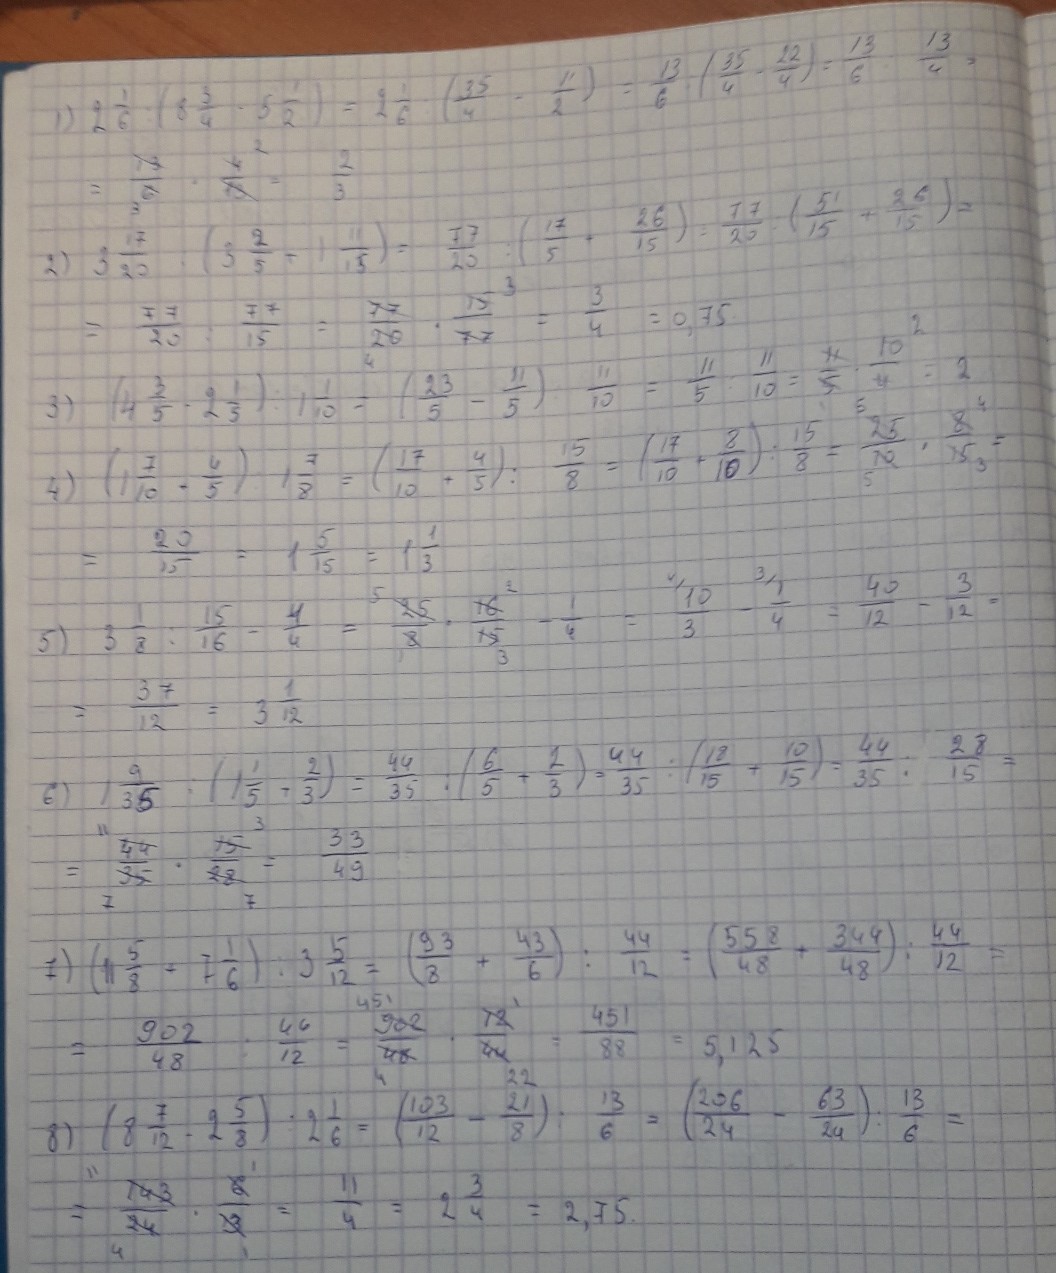 1) 2 1/6 : (8 3/4 - 5 1/2) = 2 1/6 : (35/4 - 11/2) = 13/6 : (35/4 - 22/4) = 13/6 : 13/4 =
= 13/6 · 4/13 = 2/3
2) 3 17/20 : (3 2/5 + 1 11/15) = 77/20 : (17/5 + 26/15) = 77/20 : (51/15 + 26/15) =
= 77/20 : 77/15 = 77/20 · 15/77 = 3/4 = 0,75
3) (4 3/5 - 2 1/5) : 1 1/10 = (23/5 - 11/5) : 11/10 = 11/5 : 11/10 = 11/5 · 10/11 = 2
4) (1 7/10 + 4/5) : 1 7/8 = (17/10 + 4/5) : 15/8 = (17/10 + 8/10) : 15/8 = 25/10 · 8/15 =
= 20/15 = 1 5/15 = 1 1/3
5) 3 1/8 : 15/16 - 1/4 = 25/8 · 16/15 - 1/4 = 10/3 - 1/4 = 40/12 - 3/12 =
= 37/12 = 3 1/12
6) 1 9/35 : (1 1/5 + 2/3) = 44/35 : (6/5 + 2/3) = 44/35 : (18/15 + 10/15) = 44/35 : 28/15 =
= 44/35 · 15/28 = 33/49
7) (11 5/8 + 7 1/6) : 3 5/12 = (93/8 + 43/6) : 44/12 = (558/48 + 344/48) : 44/12 =
= 902/48 : 44/12 = 902/48 · 12/44 = 451/88 = 5,125
8) (8 7/12 - 2 5/8) : 2 1/6 = (103/12 - 21/8) : 13/6 = (206/24 - 63/24) : 13/6 =
= 143/24 · 6/13 = 11/4 = 2 3/4 = 2,75.